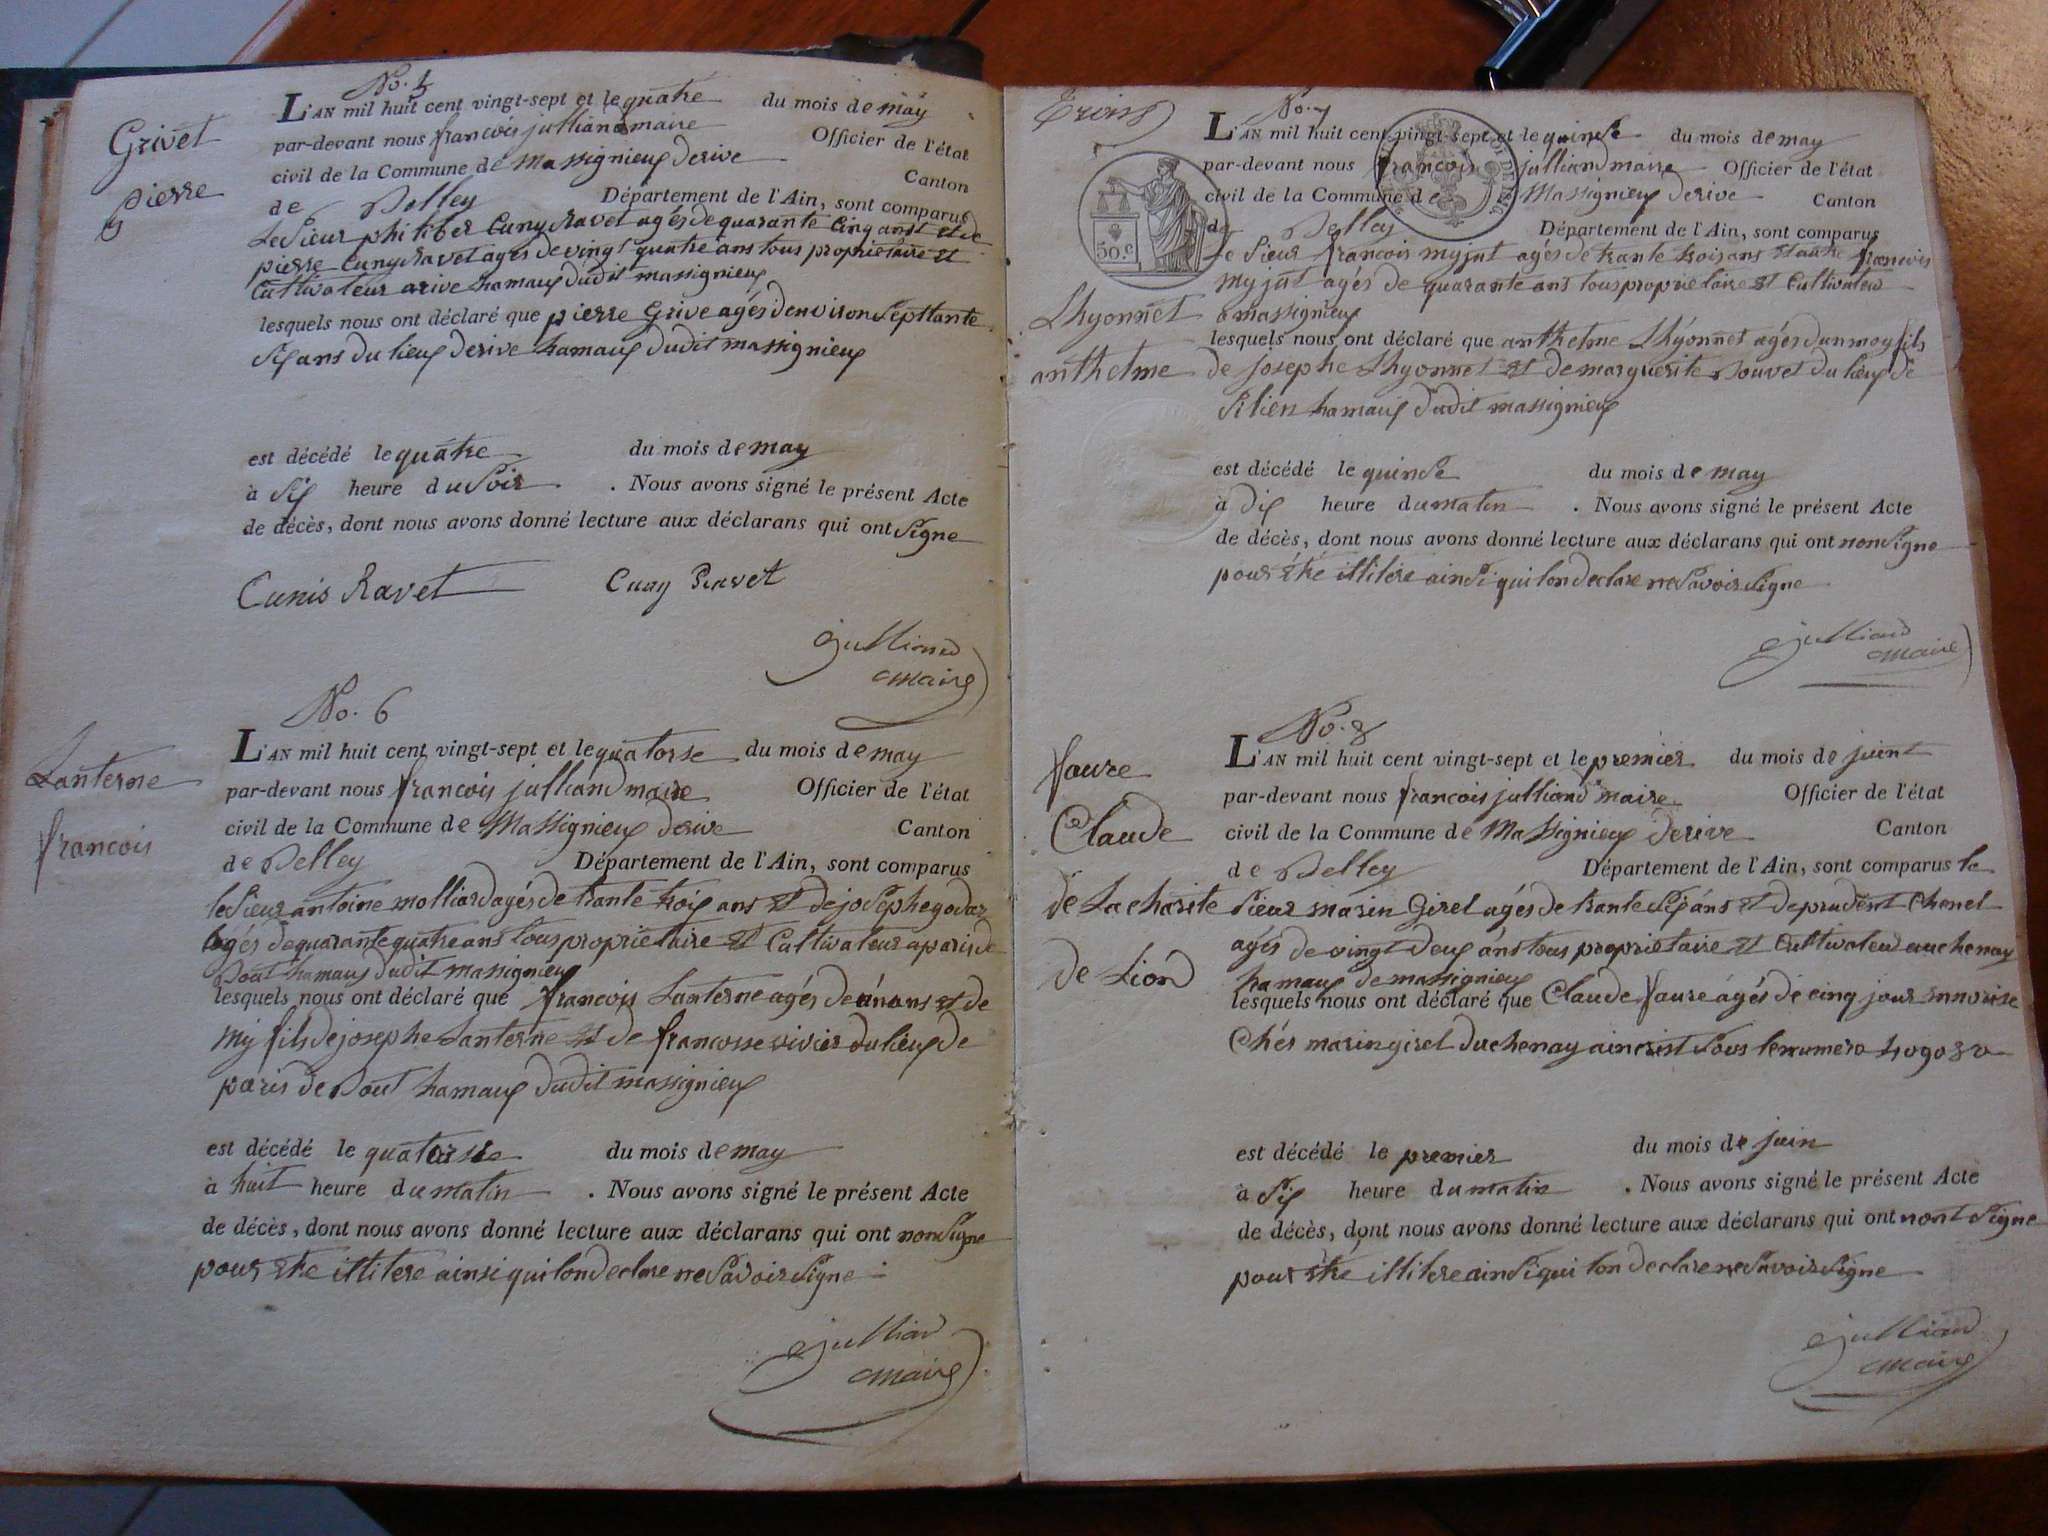 No. 5
Grivet
pierre
L'AN mil huit cent vingt-sept et le quatre du mois de may
par-devant nous francois julliand maire Officier de l'état
civil de la Commune de Massignieux derive Canton
de Belley Département de l'Ain, sont comparus
Le Sieur philiber Cuny Ravet agés de quarante Cinq anst et de
pierre Cuny Ravet agés de vingt quatre ans tous proprietaire et
Cultivateur arive hamaux dudit massignieux
lesquels nous ont déclaré que pierre Grive agés denviron Septtante
Six ans du lieux derive hamaux dudit massignieux
est décédé le quatre du mois de may
à Six heure du Soir . Nous avons signé le présent Acte
de décès, dont nous avons donné lecture aux déclarans qui ont Signe
Cunis Ravet Cuny Ravet
julliand
maire
No. 6
Lanterne
francois
L'AN mil huit cent vingt-sept et le quatorse du mois de may
par-devant nous francois julliand maire Officier de l'état
civil de la Commune de Massignieux derive Canton
de Belley Département de l'Ain, sont comparus
le Sieur antoine molliard agés de trante trois ans et de josephe godar
agés de quarante quatre ans tous proprietaire et Cultivateur a paris de
Bout hamaux dudit massignieux
lesquels nous ont déclaré que francois Lanterne agés de ans et de
my fils de josephe Lanterne et de francosse vivier du lieux de
paris de Bout hamaux dudit massignieux
est décédé le quatorse du mois de may
à huit heure du matin . Nous avons signé le présent Acte
de décès, dont nous avons donné lecture aux déclarans qui ont non Signe
pour etre illitere ainsi qui lon declare ne Savoir Signe
jullian
maire
Trois
No. 7
50.c
Lhyonnet
anthelme
L'AN mil huit cent vingt-sept et le quinse du mois de may
par-devant nous francois julliand maire Officier de l'état
civil de la Commune de Massignieux derive Canton
de Belley Département de l'Ain, sont comparus
le Sieur francois myjat agés de trante trois ans et autre francois
myjat agés de quarante ans tous proprietaire et Cultivateur
a massignieux
lesquels nous ont déclaré que anthelme Lhyonnet agés dun moy fils
de josephe Lhyonnet et de marguerite Bouvet du lieux de
Silien hamaux dudit massignieux
est décédé le quinse du mois de may
à dix heure du matin . Nous avons signé le présent Acte
de décès, dont nous avons donné lecture aux déclarans qui ont non Signe
pour etre illitere ainsi qui lon declare ne Savoir Signe
julliand
maire
No. 8
faure
Claude
de La charite
de Lion
L'AN mil huit cent vingt-sept et le premier du mois de juint
par-devant nous francois julliand maire Officier de l'état
civil de la Commune de Massignieux derive Canton
de Belley Département de l'Ain, sont comparus le
Sieur marin Girel agés de trante Six ans et de prudent Chenel
agés de vingt deux ans tous proprietaire et Cultivateur auchenay
hamaux de massignieux
lesquels nous ont déclaré que Claude faure agés de cinq jour
Chés marin girel duchenay Sous le numero
est décédé le premier du mois de juin
à Six heure du matin . Nous avons signé le présent Acte
de décès, dont nous avons donné lecture aux déclarans qui ont nont Signe
pour etre illitere ainsi qui lon declare ne Savoir Signe
julliand
maire